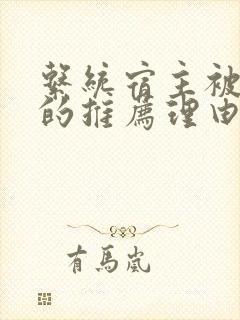 繫統宿主被
的推薦理由
有馬嵐